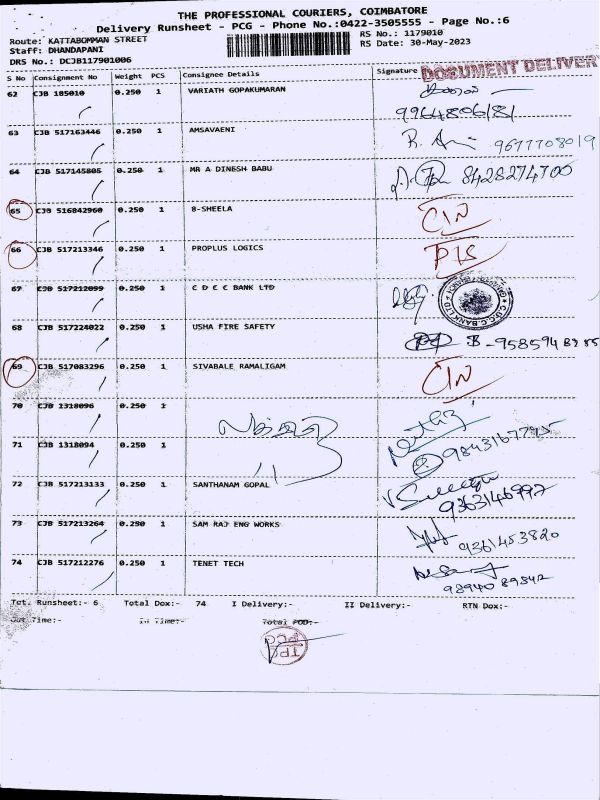 THE PROFESSIONAL COURIERS, COIMBATORE
Delivery Runsheet - PCG - Phone No.:0422-3505555 - Page No.:6
Route: KATTABOMMAN STREET
RS No.: 1179010
Staff: DHANDAPANI
RS Date: 30-May-2023
DRS No.: DCJB117901006
DOCUMENT DELIVER
S No Consignment No Weight PCS Consignee Details Signature
62 CJB 185010 0.250 1 VARIATH GOPAKUMARAN
9964806181
63 CJB 517163446 0.250 1 AMSAVAENI 9677708019
64 CJB 517145805 0.250 1 MR A DINESH BABU 8428274700
65 CJB 516842960 0.250 1 B-SHEELA
66 CJB 517213346 0.250 1 PROPLUS LOGICS
67 CJB 517212099 0.250 1 C D C C BANK LTD
68 CJB 517224022 0.250 1 USHA FIRE SAFETY
69 CJB 517083296 0.250 1 SIVABALE RAMALIGAM
70 CJB 1318096 0.250 1
71 CJB 1318094 0.250 1
72 CJB 517213133 0.250 1 SANTHANAM GOPAL
9363146992
73 CJB 517213264 0.250 1 SAM RAJ ENG WORKS
9361453820
74 CJB 517212276 0.250 1 TENET TECH
98940 89842
Tot. Runsheet:- 6 Total Dox:- 74 I Delivery:- II Delivery:- RTN Dox:-
Out Time:- In Time:- Total POD:-